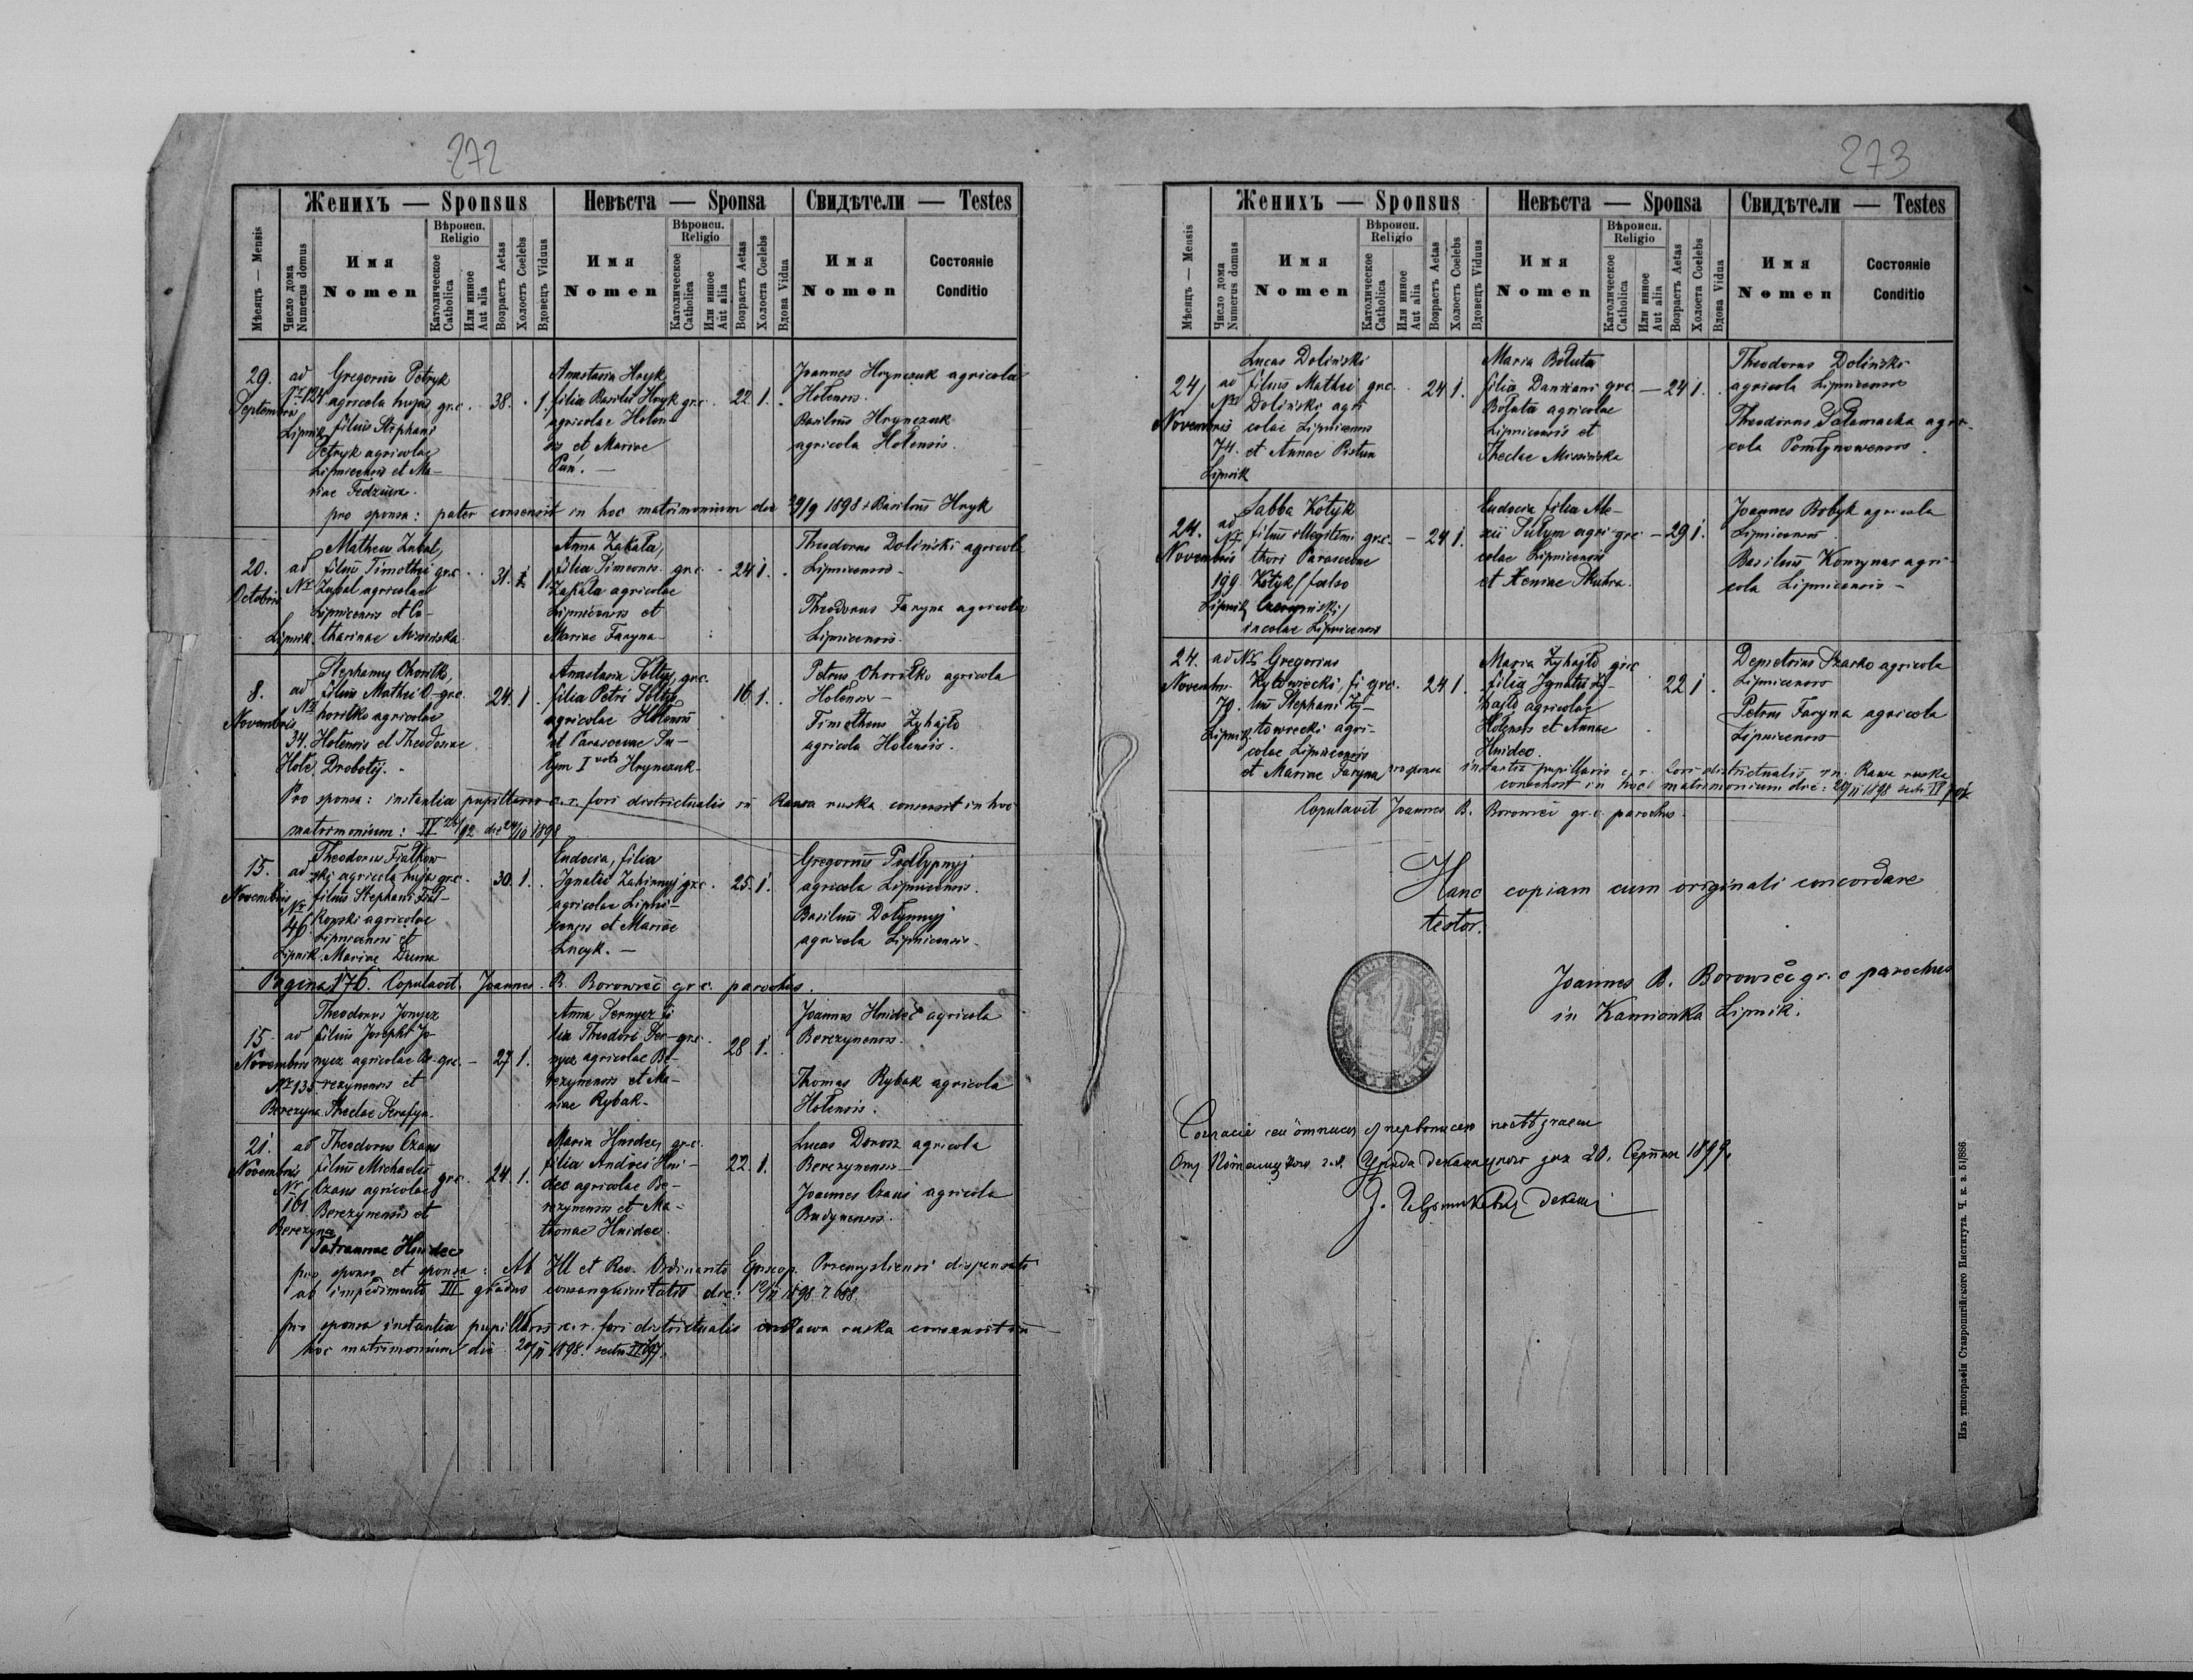 272
Женихъ — Sponsus
Невѣста — Sponsa
Свидѣтели — Testes
Мѣсяцъ — Mensis
Число дома
Numerus domus
Имя
Nomen
Вѣроисп.
Religio
Католическое
Catholica
Или инное
Aut alia
Возрастъ Aetas
Холостъ Coelebs
Вдовецъ Viduus
Имя
Nomen
Вѣроисп.
Religio
Католическое
Catholica
Или инное
Aut alia
Возрастъ Aetas
Холоста Coelebs
Вдова Vidua
Имя
Nomen
Состояніе
Conditio
29.
Septembris
ad
Nr 124
Lipnik
Gregorius Petryk
agricola hujas
filius Stephani
Petryk agricolae
Lipnicensis et Ma-
riae
gr.c. 38. 1.
Anastasia Hryk
filia Basilii Hryk
agricolae Holen-
sis et Mariae
Pan. —
gr.c. 22. 1.
Joannes Hrynczuk agricola
Holensis.
Basilius Hrynczuk
agricola Holensis.
pro sponsa: pater consensit in hoc matrimonium die 29/9 1898 + Basilius Hryk
20.
Octobris
ad
Nr
Lipnik.
Matheus Zubal,
filius Timothei
Zubal agricolae
Lipnicensis et Ca-
tharinae
gr.c. 31. 1.
Anna Zakala,
filia Simeonis
Zakala agricolae
Lipnicensis et
Mariae Faryna
gr.c. 24 1.
Theodorus Doliński agricola
Lipnicensis
Theodorus Faryna agricola
Lipnicensis.
8.
Novembris
ad
Nr
34.
Hole.
Stephanus Choritko,
filius Mathei C-
horitko agricolae
Holensis et Theodosiae
Drobotij.
gr.c. 24. 1.
Anastasia Soltys,
filia Petri Soltys
agricolae Holensis
et Parascevae Su-
lym I voto Hrynczuk
gr.c. 16 1.
Petrus Choritko agricola
Holensis
Timotheus Zyhajlo
agricola Holensis.
Pro sponsa: instantia pupillaris c.r. fori districtualis in Rawa ruska consensit in hoc
matrimonium: IV die 1898
15.
Novembris
ad
Nr
46.
Lipnik.
Theodorus Fialkow-
skij agricola hujas
filius Stephani Fial-
kowski agricolae
Lipnicensis et
Mariae Duma
gr.c. 30. 1.
Eudocia, filia
Ignatii Zahirnyj
agricolae Lipni-
censis et Mariae
Lucyk. —
gr.c. 25. 1.
Gregorius Podlypnyj
agricola Lipnicensis.
Basilius Dolynnyj
agricola Lipnicensis
Pagina 176. Copulavit Joannes B. Borowiec gr. c. parochus.
15
Novembris
ad
Nr 135
Berezyna
Theodorus Jonycz
filius Josephi Jo-
nycz agricolae Be-
rezynensis et
Theclae Serafyn
gr.c. — 27 1.
Anna Sernycz fi
lia Theodori Ser-
nycz agricolae Be-
rezynensis et Ma-
riae Rybak
gr.c. 28 1.
Joannes Hnideć agricola
Berezynensis.
Thomas Rybak agricola
Holensis.
21.
Novembris
ad
Nr
161
Berezyna
Theodorus Czaus
filius Michaelis
Czaus agricolae
Berezynensis et
Tatiannae Hnidec
gr.c. 24. 1.
Maria Hnidec,
filia Andreï Hni-
dec agricolae Be-
rezynensis et Ma-
tronae Hnidec.
gr.c. 22. 1.
Lucas Dorosz agricola
Berezynensis
Joannes Czaus agricola
Budynensis.
pro sponso et sponsa: Ab Ill et Rev. Ordinario Episcop. Premysliensi dispensati
ab impedimento III gradus consanguinitatis die: 1898 688.
pro sponsa instantia pupillaris c.r. fori districtualis in Rawa ruska consensit in
hoc matrimonium die 20/11 1898.
273
Женихъ — Sponsus
Невѣста — Sponsa
Свидѣтели — Testes
Мѣсяцъ — Mensis
Число дома
Numerus domus
Имя
Nomen
Вѣроисп.
Religio
Католическое
Catholica
Или инное
Aut alia
Возрастъ Aetas
Холостъ Coelebs
Вдовецъ Viduus
Имя
Nomen
Вѣроисп.
Religio
Католическое
Catholica
Или инное
Aut alia
Возрастъ Aetas
Холоста Coelebs
Вдова Vidua
Имя
Nomen
Состояніе
Conditio
24
Novembris
ad
Nr
74.
Lipnik
Lucas Doliński
filius Mathei
Doliński agri
colae Lipnicensis
et Annae Pistun
gr.c. 24 1.
Maria Boluta
filia Damiani
Boluta agricolae
Lipnicensis et
Theclae
gr.c. — 24 1.
Theodorus Doliński
agricola Lipnicensis
Theodorus Palamacha agri-
cola
24.
Novembris
ad
Nr
199
Lipnik
Sabba Kotyk
filius illegitimi
thori Parascevae
Kotyk /falso
incolae Lipnicensis
gr.c. — 24 1.
Eudocia filia Ale-
xii Sulym agri-
colae Lipnicensis
et Xeniae Skubra.
gr.c — 29 1.
Joannes Bobyk agricola
Lipnicensis.
Basilius Komynar agri-
cola Lipnicensis —
24.
Novembris
ad Nr
70.
Lipnik
Gregorius
Zytowiecki, fi
lius Stephani Zy-
towiecki agri-
colae Lipnicensis
et Mariae Faryna
gr.c. 24 1.
Maria Zyhajlo
filia Ignatii Zy-
hajlo agricolae
Holensis et Annae
Hnidec.
gr.c 22 1.
Demetrius Szarko agricola
Lipnicensis
Petrus Faryna agricola
Lipnicensis
pro sponsa instantia pupillaris c.r. fori districtualis in Rawa ruska
consensit in hoc matrimonium die: 20/11 1898
Copulavit Joannes B. Borowiec gr. c. parochus.
Hanc copiam cum originali concordare
testor.
Joannes B. Borowiec gr. c parochus
in Kamionka Lipnik.
20. 1899.
Изъ типографіи Ставропигійского Института. Ч. к. з. 51/886